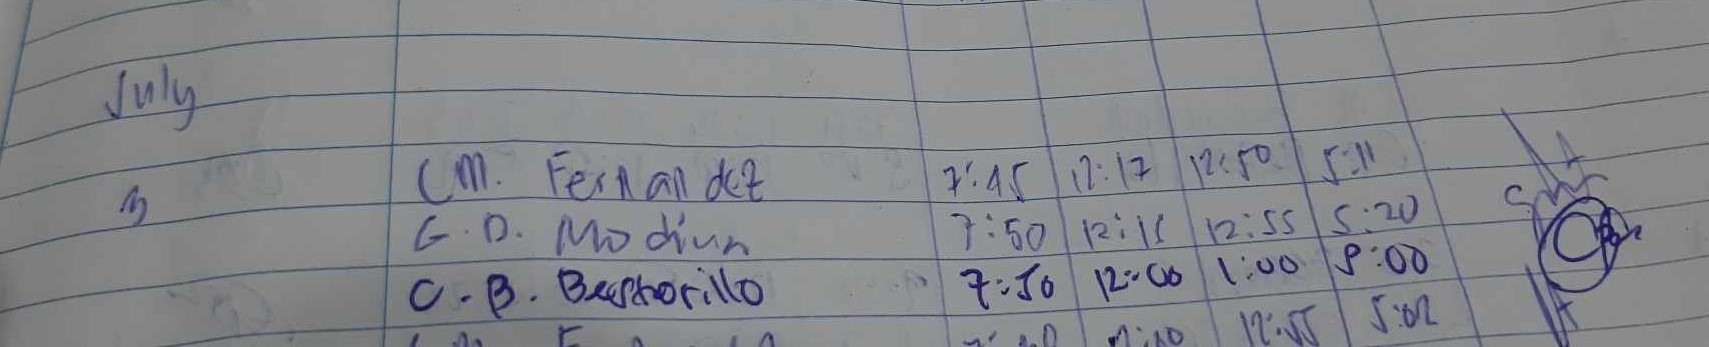 July
3 CM. Fernandez 7:45 12:17 12:50 5:11
G.D. Modiun 7:50 12:15 12:55 5:20
C.B. Beastorillo 7:50 12:00 1:00 5:00
12:55 5:02